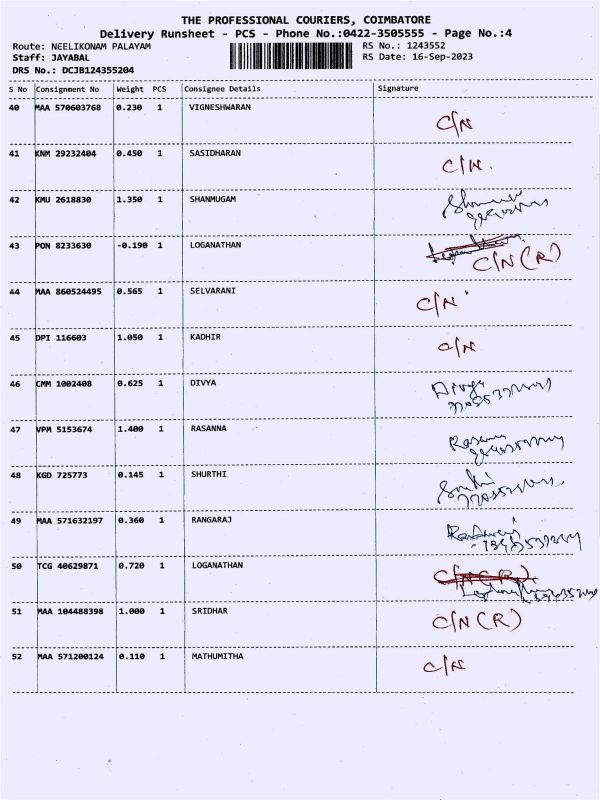 THE PROFESSIONAL COURIERS, COIMBATORE
Delivery Runsheet - PCS - Phone No.:0422-3505555 - Page No.:4
Route: NEELIKONAM PALAYAM RS No.: 1243552
Staff: JAYABAL RS Date: 16-Sep-2023
DRS No.: DCJB124355204
S No Consignment No Weight PCS Consignee Details Signature
40 MAA 570603768 0.230 1 VIGNESHWARAN C/N
41 KNM 29232404 0.450 1 SASIDHARAN C/N.
42 KMU 2618830 1.350 1 SHANMUGAM
43 PON 8233630 -0.190 1 LOGANATHAN C/N (R)
44 MAA 860524495 0.565 1 SELVARANI C/N
45 DPI 116603 1.050 1 KADHIR C/N
46 CMM 1002408 0.625 1 DIVYA Divya
47 VPM 5153674 1.400 1 RASANNA
48 KGD 725773 0.145 1 SHURTHI
49 MAA 571632197 0.360 1 RANGARAJ
50 TCG 40629871 0.720 1 LOGANATHAN C/N (R)
51 MAA 104488398 1.000 1 SRIDHAR C/N (R)
52 MAA 571200124 0.110 1 MATHUMITHA C/N